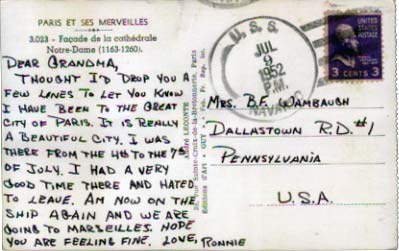 PARIS ET SES MERVEILLES
3.023 - Façade de la cathédrale
Notre-Dame (1163-1260).
DEAR GRANDMA,
THOUGHT I'D DROP YOU A
FEW LINES TO LET YOU KNOW
I HAVE BEEN TO THE GREAT
CITY OF PARIS. IT IS REALLY
A BEAUTIFUL CITY. I WAS
THERE FROM THE 4TH TO THE 7TH
OF JULY. I HAD A VERY
GOOD TIME THERE AND HATED
TO LEAVE. AM NOW ON THE
SHIP AGAIN AND WE ARE
GOING TO MARSEILLES. HOPE
YOU ARE FEELING FINE. LOVE, RONNIE
U.S.S.
JUL
9
1952
P.M.
UNITED STATES
POSTAGE
3 CENTS 3
MRS. B.F. WAMBAUGH
DALLASTOWN R.D.#1
PENNSYLVANIA
U.S.A.